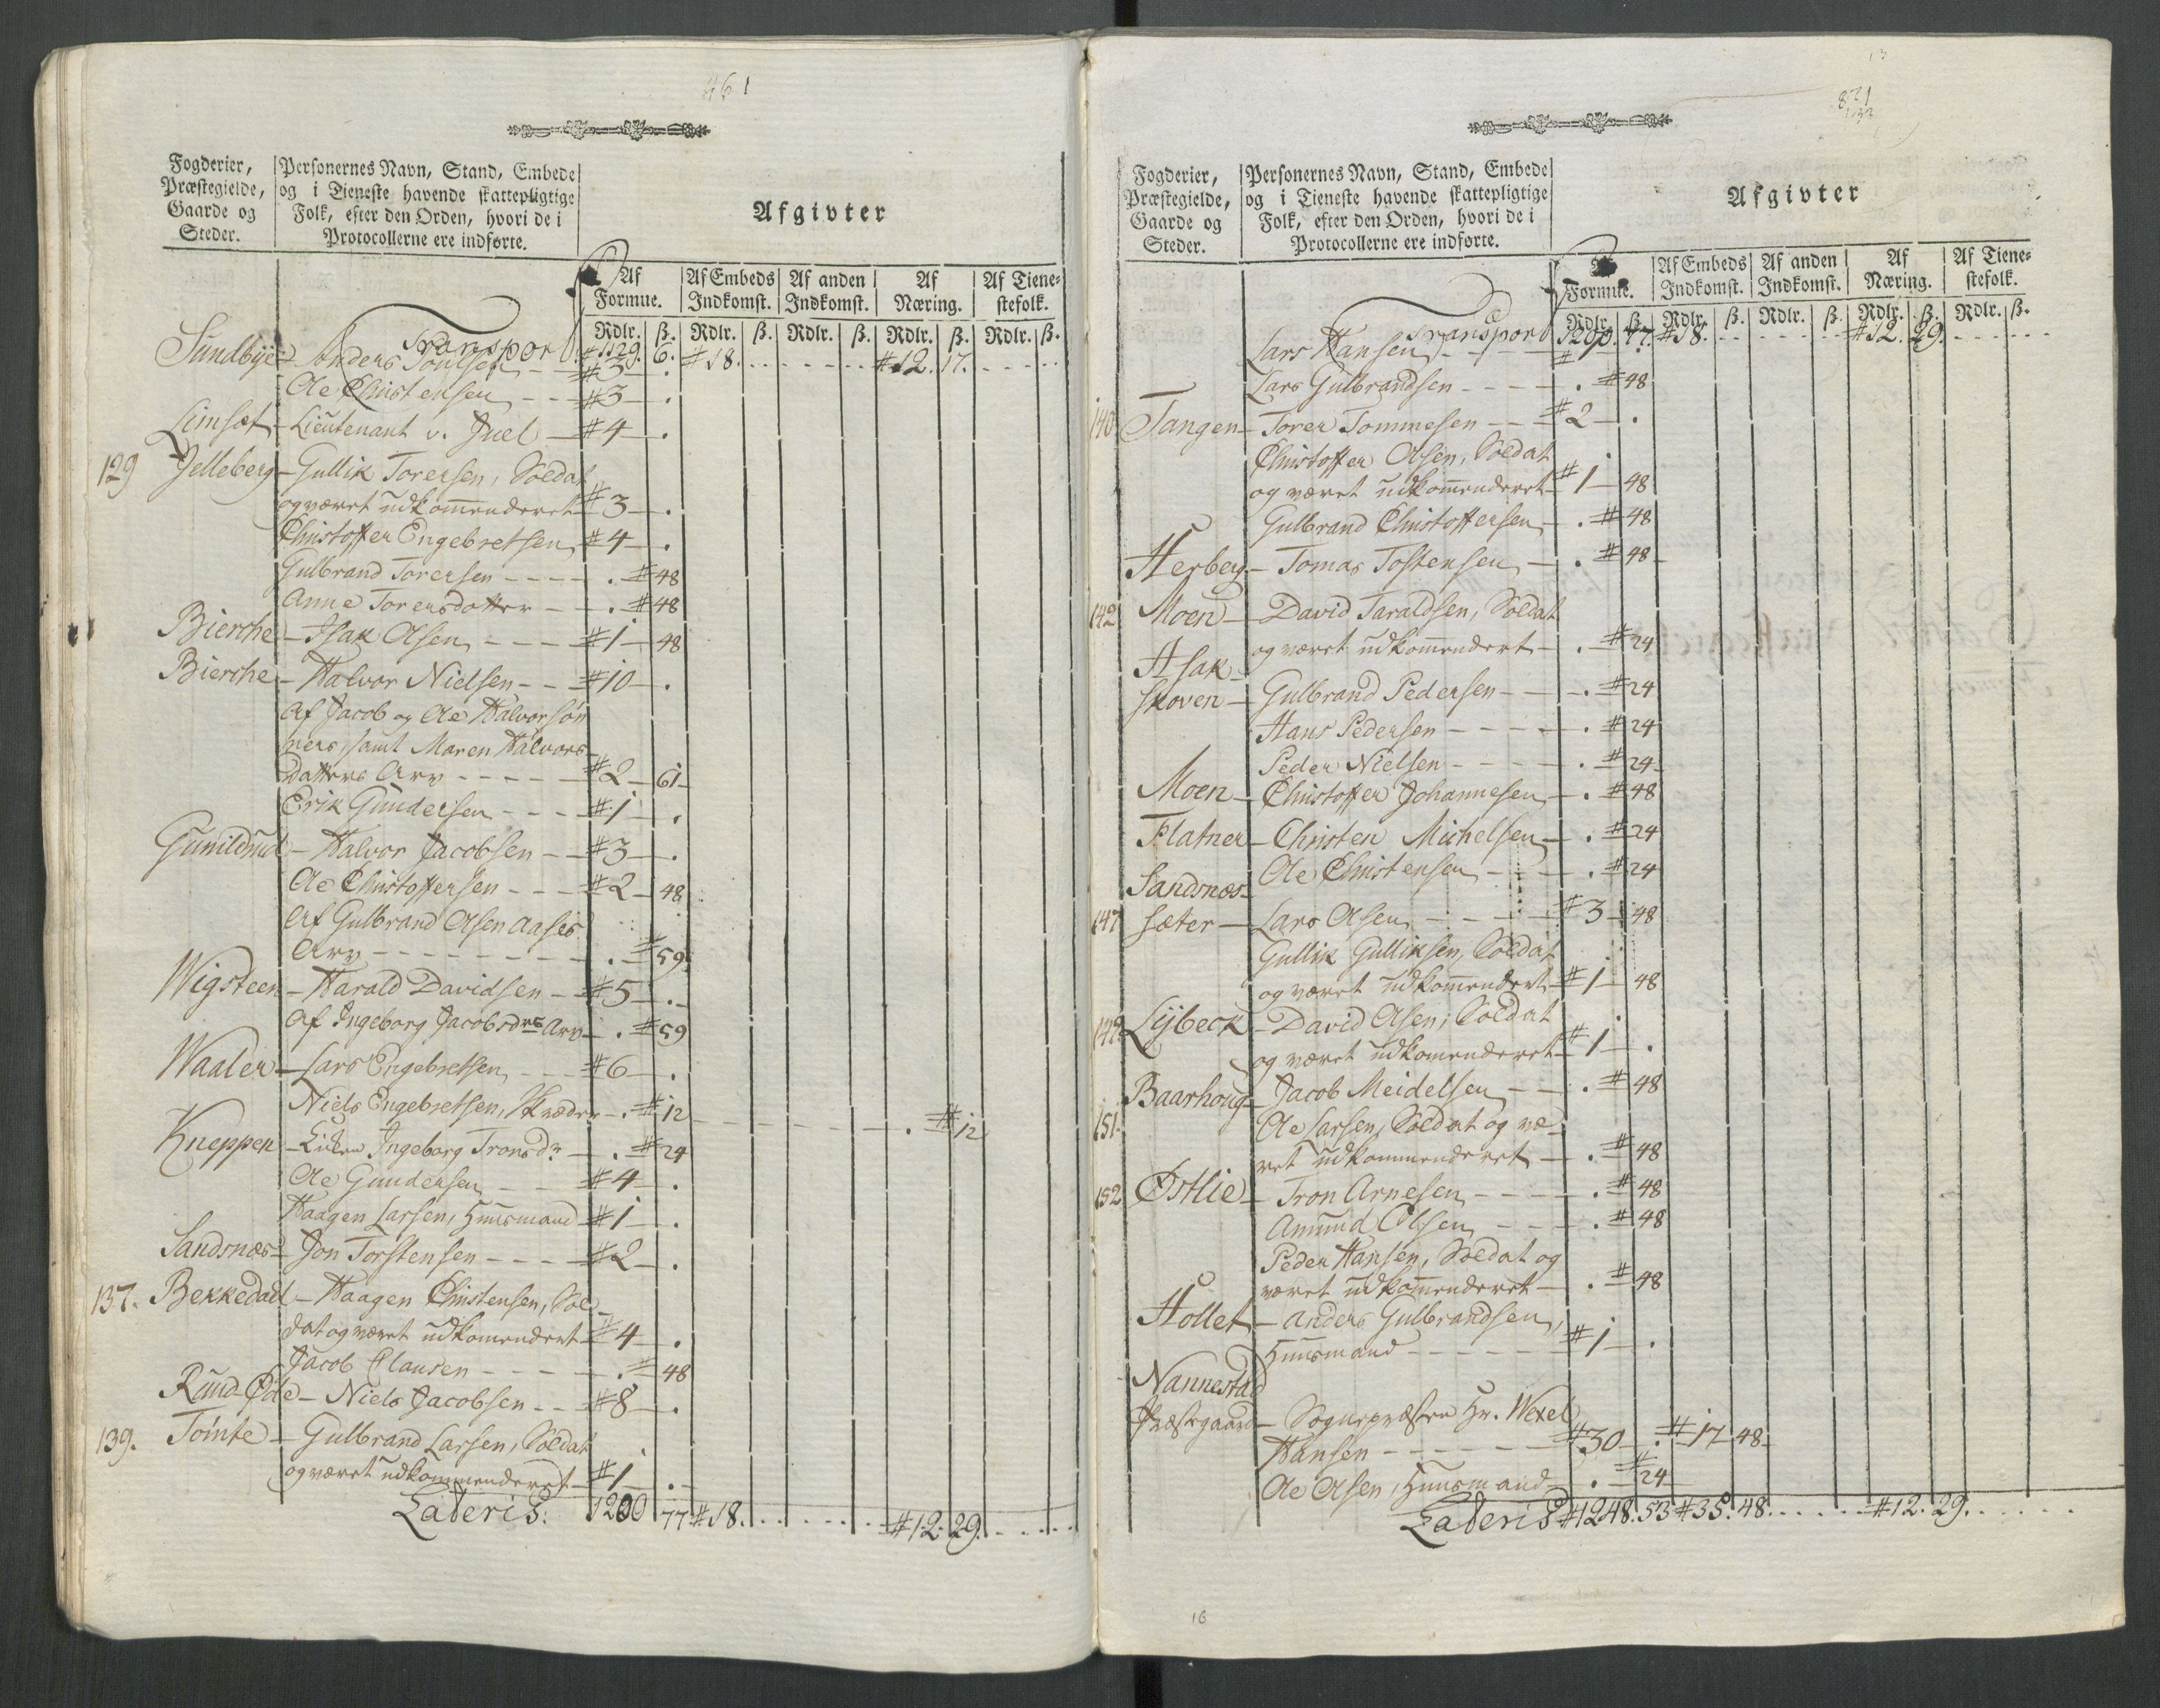 461
Fogderier,
Præstegielde,
Gaarde og
Steder.
Personernes Navn, Stand, Embede
og i Tieneste havende skattepligtige
Folk, efter den Orden, hvori de i
Protocollerne ere indførte.
Afgivter
Af Formue. Af Embeds Indkomst. Af anden Indkomst. Af Næring. Af Tienestefolk.
Rdlr. ß. Rdlr. ß. Rdlr. ß. Rdlr. ß. Rdlr. ß.
Transport #1129. 6. #18. #12. 17.
Sundbye - Anders Poulsen - #3 - .
Ole Christensen - - #3 - .
Limsæt - Lieutenant v. Juel - #4 - .
129 Jelleberg - Gullik Torersen, Soldat
og været udkom̅enderet - #3 - .
Christoffer Engebretsen #4 - .
Gulbrand Torersen - - - . #48
Anne Torersdotter - - . #48
Bierche - Isak Olsen - - - #1 - 48
Bierche - Halvor Nielsen - - #10 - .
Af Jacob og Ole Halvorsøn
ners, samt Maren Halvors-
datters Arv - - - - #2 - 61
Erik Gundersen - - - #1 - .
Gunildrud - Halvor Jacobsen - - #3 - .
Ole Christoffersen - - - #2 - 48
Af Gulbrand Olsen Aases
Arv - - - - - . #59.
Wigsteen - Harald Davidsen - #5 - .
Af Ingeborg Jacobsdrs Arv - . #59
Waaler - Lars Engebretsen - - #6 - .
Niels Engebretsen, Skræder - . #12 - - - . #12
Kneppen - Enken Ingeborg Tronsdr - . #24
Ole Gundersen - - #4 - .
Haagen Larsen, Huusmand #1 - .
Sandsnæs - Jon Torstensen - - - #2 - .
137. Bekkedad - Haagen Christensen, Sol-
dat og været udkomendert - #4 - .
Jacob Clausen - - - - . #48
Rund Øde - Niels Jacobsen - - #8 - .
139. Tømte - Gulbrand Larsen, Soldat
og været udkommenderet - #1 - .
Lateris: 1200 77 #18. #12. 29.
13
821
Fogderier,
Præstegielde,
Gaarde og
Steder.
Personernes Navn, Stand, Embede
og i Tieneste havende skattepligtige
Folk, efter den Orden, hvori de i
Protocollerne ere indførte.
Afgivter
Af Formue. Af Embeds Indkomst. Af anden Indkomst. Af Næring. Af Tienestefolk.
Rdlr. ß. Rdlr. ß. Rdlr. ß. Rdlr. ß. Rdlr. ß.
Transport 1200. 77. #18. #12. 29.
Lars Hansen - - - #
Lars Gulbrandsen - - - . #48
140 Tangen - Torer Tommesen - - #2 - .
Christoffer Olsen, Soldat
og været udkom̅enderet - #1 - 48
Gulbrand Christoffersen - . #48
Herberg - Tomas Tostensen - . #48
142 Moen - David Taraldsen, Soldat
og været udkom̅endert - . #24
Asak-
skoven - Gulbrand Pedersen - - . #24
Hans Pedersen - - - - . #24
Peder Nielsen - - - . #24
Moen - Christoffer Johannesen - . #48
Flatner - Christen Michelsen - . #24
Ole Christensen - - - . #24
Sandsnæs-
147 sæter - Lars Olsen - - - #3 - 48
Gullik Gulliksen, Soldat
og været udkom̅endert #1 - 48
149. Lybeck - David Olsen, Soldat
og været udkomenderet - #1 - .
Baarhoug - Jacob Meidelsen - - . #48
151. Ole Larsen, Soldat og væ-
ret udkommenderet - . #48
152 Østlie - Tron Arnesen - - - . #48
Amund Olsen - - - . #48
Peder Hansen, Soldat og
været udkom̅enderet - . #48
Hollet - Anders Gulbrandsen,
Huusmand - - - - #1 - .
Nannestad
Præstegaard - Sognepræsten Hr. Wexel
Hansen - - - - #30 - . #17 48
Ole Olsen, Huusmand - . #24
Lateris #1248. 53 #35. 48. #12. 29.
16